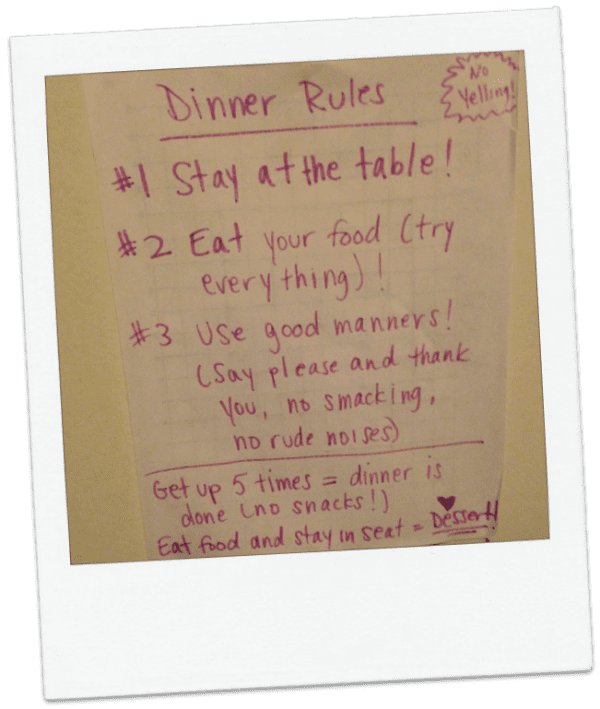 Dinner Rules
No
Yelling!
#1 Stay at the table!
#2 Eat your food (try
everything)!
#3 Use good manners!
(Say please and thank
you, no smacking,
no rude noises)
Get up 5 times = dinner is
done (no snacks!)
Eat food and stay in seat = Dessert!